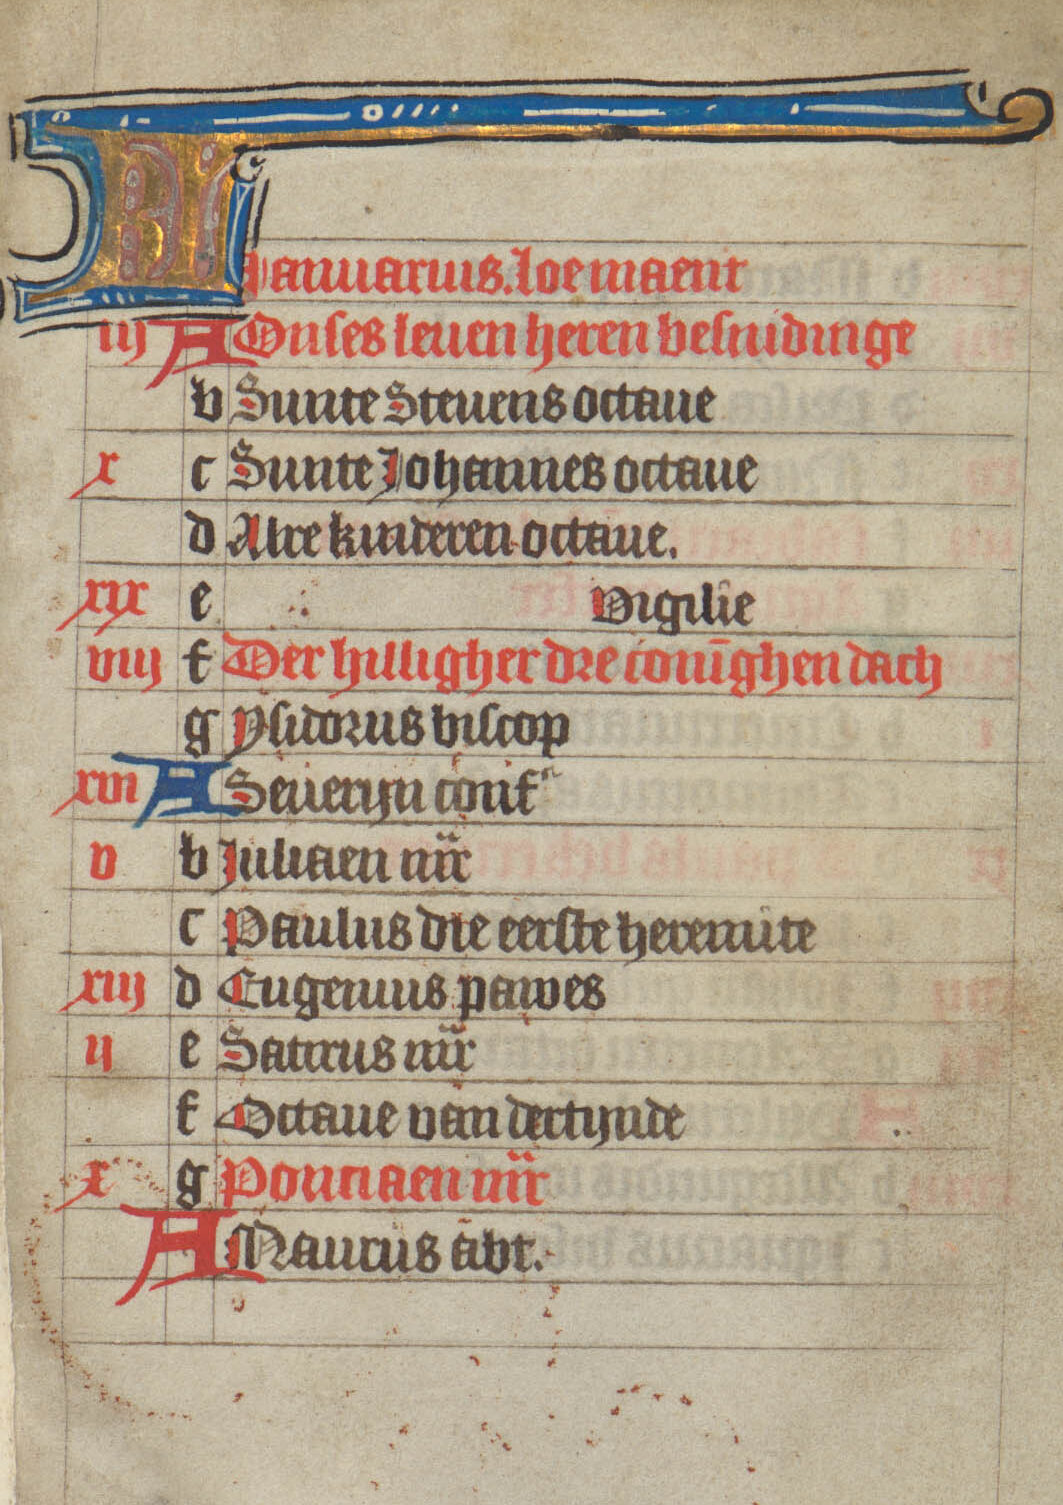 KL
Januarius. Loemaent
iij A Onses leuen heren besnidinge
b Sunte Steuens octaue
x c Sunte Johannes octaue
d Alre kinderen octaue.
xix e Vigilie
viij f Der hilligher dre conīghen dach
g Ysidorus biscop
xvi A Seueryn conf
v b Juliaen mr
c Paulus die eerste heremite
xiij d Eugenius pawes
ij e Satirus mr
f Octaue van dertijnde
x g Ponciaen mr
A Maurus abt.